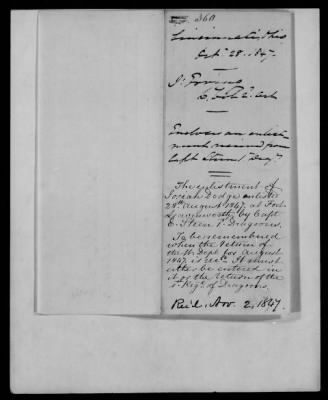 360
Cincinnati, Ohio
Oct. 28. 1847.
Encloses an enlist-
ment received from
Capt Steen,
The enlistment of
Josiah Dodge enlisted
28th August 1847, at Fort
Leavenworth by Capt
E. Steen 1st Dragoons.
To be remembered
when the return of
the for August
1847, is It must
either be entered in
it or the return of the
1st Regt. of Dragoons.
Rec'd. Nov. 2, 1847.